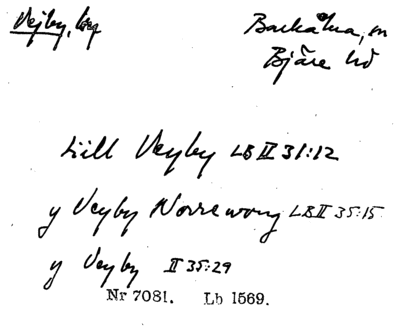 Vejby, by
Barkåkra, sn
Bjäre hd
till Veyby LB II 31:12
y Veyby Norrewong LB II 35:15
y Veyby II 35:29
Nr 7081. Lb 1569.